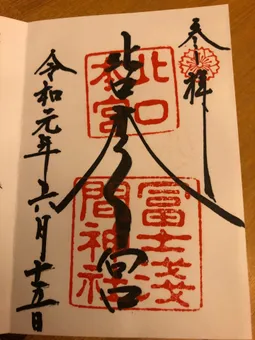 参拝
北口本宮
令和元年六月十五日
北口
本宮
冨士淺
間神社